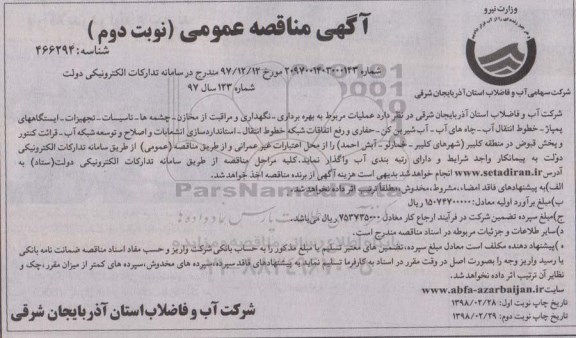 وزارت نیرو
آگهی مناقصه عمومی (نوبت دوم)
شناسه: ۴۶۶۲۹۴
شماره ۲۰۹۷۰۰۱۴۰۳۰۰۰۱۳۳ مورخ ۹۷/۱۲/۱۲ مندرج در سامانه تدارکات الکترونیکی دولت
شماره ۱۲۳ سال ۹۷
شرکت سهامی آب و فاضلاب استان آذربایجان شرقی
شرکت آب و فاضلاب استان آذربایجان شرقی در نظر دارد عملیات مربوط به بهره برداری-نگهداری و مراقبت از مخازن-چشمه ها-تاسیسات-تجهیزات-ایستگاههای
پمپاژ-خطوط انتقال آب-چاه های آب-آب شیرین کن-حفاری و رفع اتفاقات شبکه خطوط انتقال-استانداردسازی انشعابات و اصلاح و توسعه شبکه آب-قرائت کنتور
و پخش قبوض در منطقه کلیبر (شهرهای کلیبر-خمارلو-آبش احمد) را از محل اعتبارات غیر عمرانی و از طریق مناقصه (عمومی) از طریق سامانه تدارکات الکترونیکی
دولت به پیمانکار واجد شرایط و دارای رتبه بندی آب واگذار نماید.کلیه مراحل مناقصه از طریق سامانه تدارکات الکترونیکی دولت(ستاد) به
آدرس www.setadiran.ir انجام خواهد شد بدیهی است هزینه آگهی از برنده مناقصه اخذ خواهد شد.
الف)به پیشنهادهای فاقد امضاء،مشروط،مخدوش مطلقا ترتیب اثر داده نخواهد شد.
ب)مبلغ برآورد اولیه معادل:۱۵۰۷۴۷۰۰۰۰۰ ریال
ج)مبلغ سپرده تضمین شرکت در فرآیند ارجاع کار معادل ۷۵۳۷۳۵۰۰۰ ریال می‌باشد.
د)سایر طلاعات و جزئیات مربوطه در اسناد مناقصه مندرج است.
ه )پیشنهاد دهنده مکلف است معادل مبلغ سپرده،تضمین های معتبر تسلیم یا مبلغ مذکور را به حساب بانکی شرکت واریز و حسب مفاد اسناد مناقصه ضمانت نامه بانکی
یا رسید واریز وجه را بصورت اصل در وقت مقرر در اسناد به کارفرما تسلیم نماید به پیشنهادهای فاقد سپرده،سپرده های مخدوش،سپرده های کمتر از میزان مقرر،چک و
نظایر آن ترتیب اثر داده نخواهد شد.
سایت www.abfa-azarbaijan.ir
تاریخ چاپ نوبت اول: ۱۳۹۸/۰۲/۲۸
تاریخ چاپ نوبت دوم: ۱۳۹۸/۰۲/۲۹
شرکت آب و فاضلاب استان آذربایجان شرقی
ParsNamadData